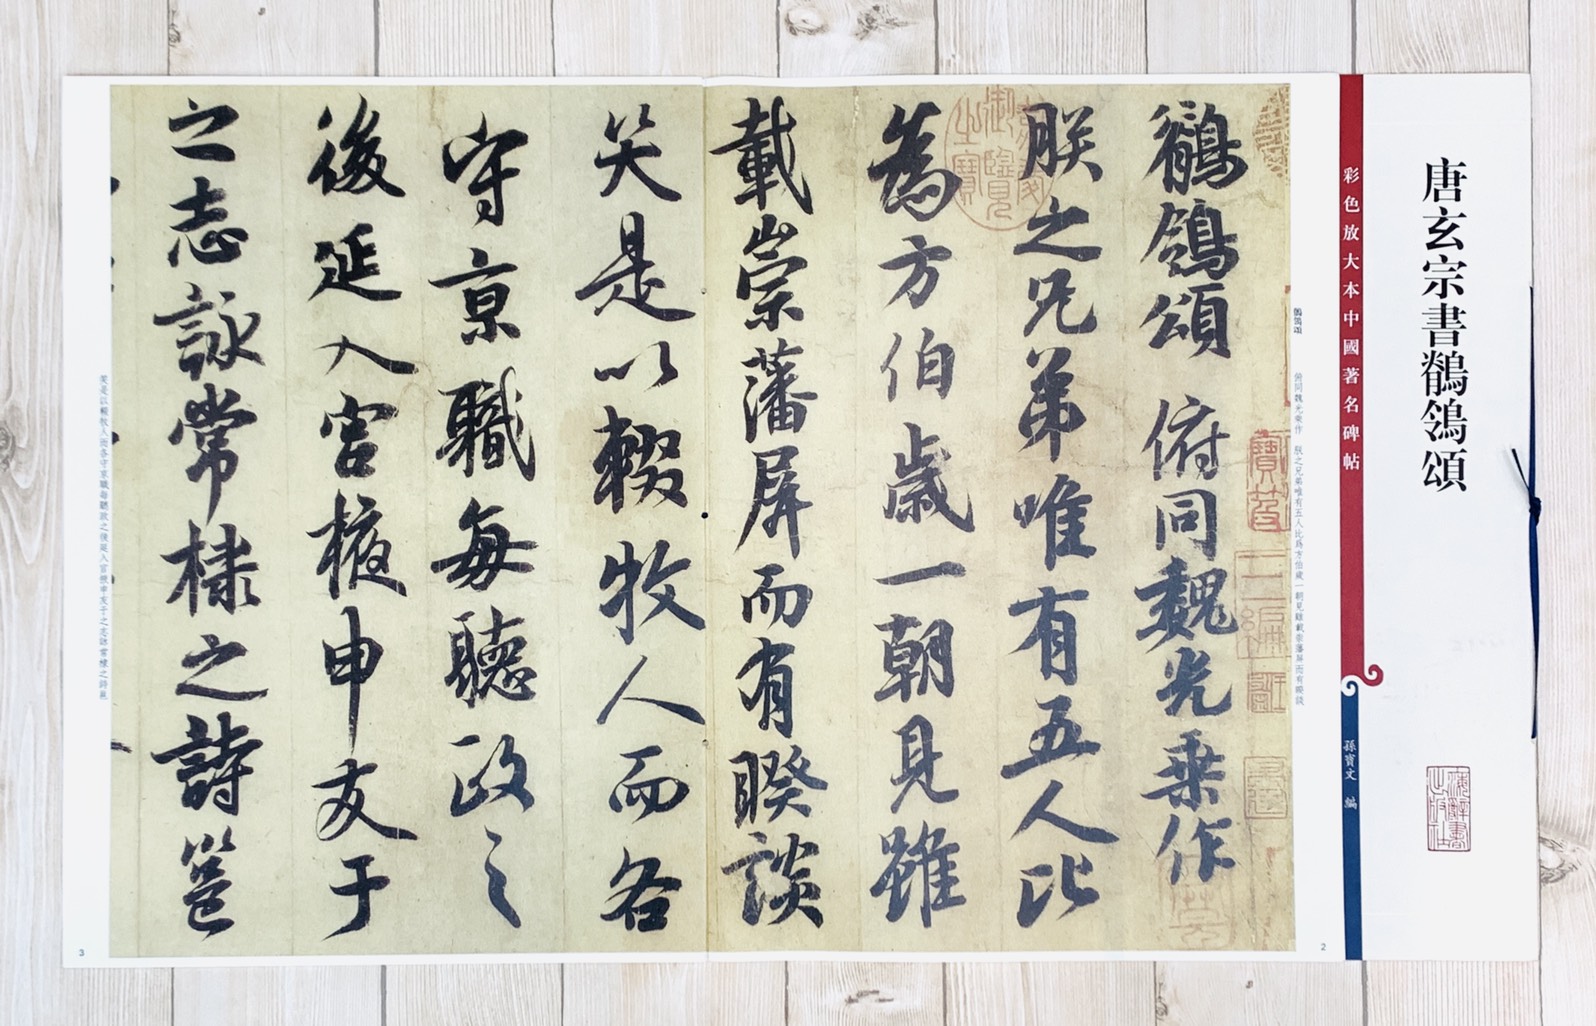 唐玄宗書鶺鴒頌
彩色放大本中國著名碑帖
孫寶文 編
鶺鴒頌 俯同魏光乗作
朕之兄弟唯有五人比
為方伯歳一朝見雖
載崇藩屏而有睽談
笑是以輟牧人而各
守京職每聽政之
後延入宮掖申友于
之志詠常棣之詩邕
鶺鴒頌
俯同魏光乗作 朕之兄弟唯有五人比爲方伯歲一朝見雖載崇藩屏而有睽談
笑是以輟牧人而各守京職每聽政之後延入宮掖申友于之志詠常棣之詩邕
2
3